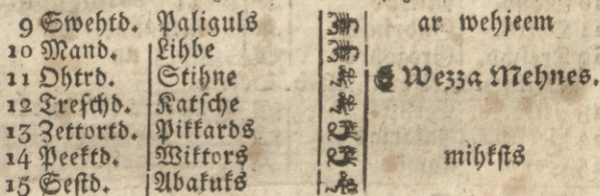 9 Swehtd. Paliguls ar wehjeem
10 Mand. Lihbe
11 Ohtrd. Stihne Wezza Mehnes.
12 Treschd. Katsche
13 Zettortd. Pikkards
14 Peektd. Wiktors mihksts
15 Sestd. Abakuks